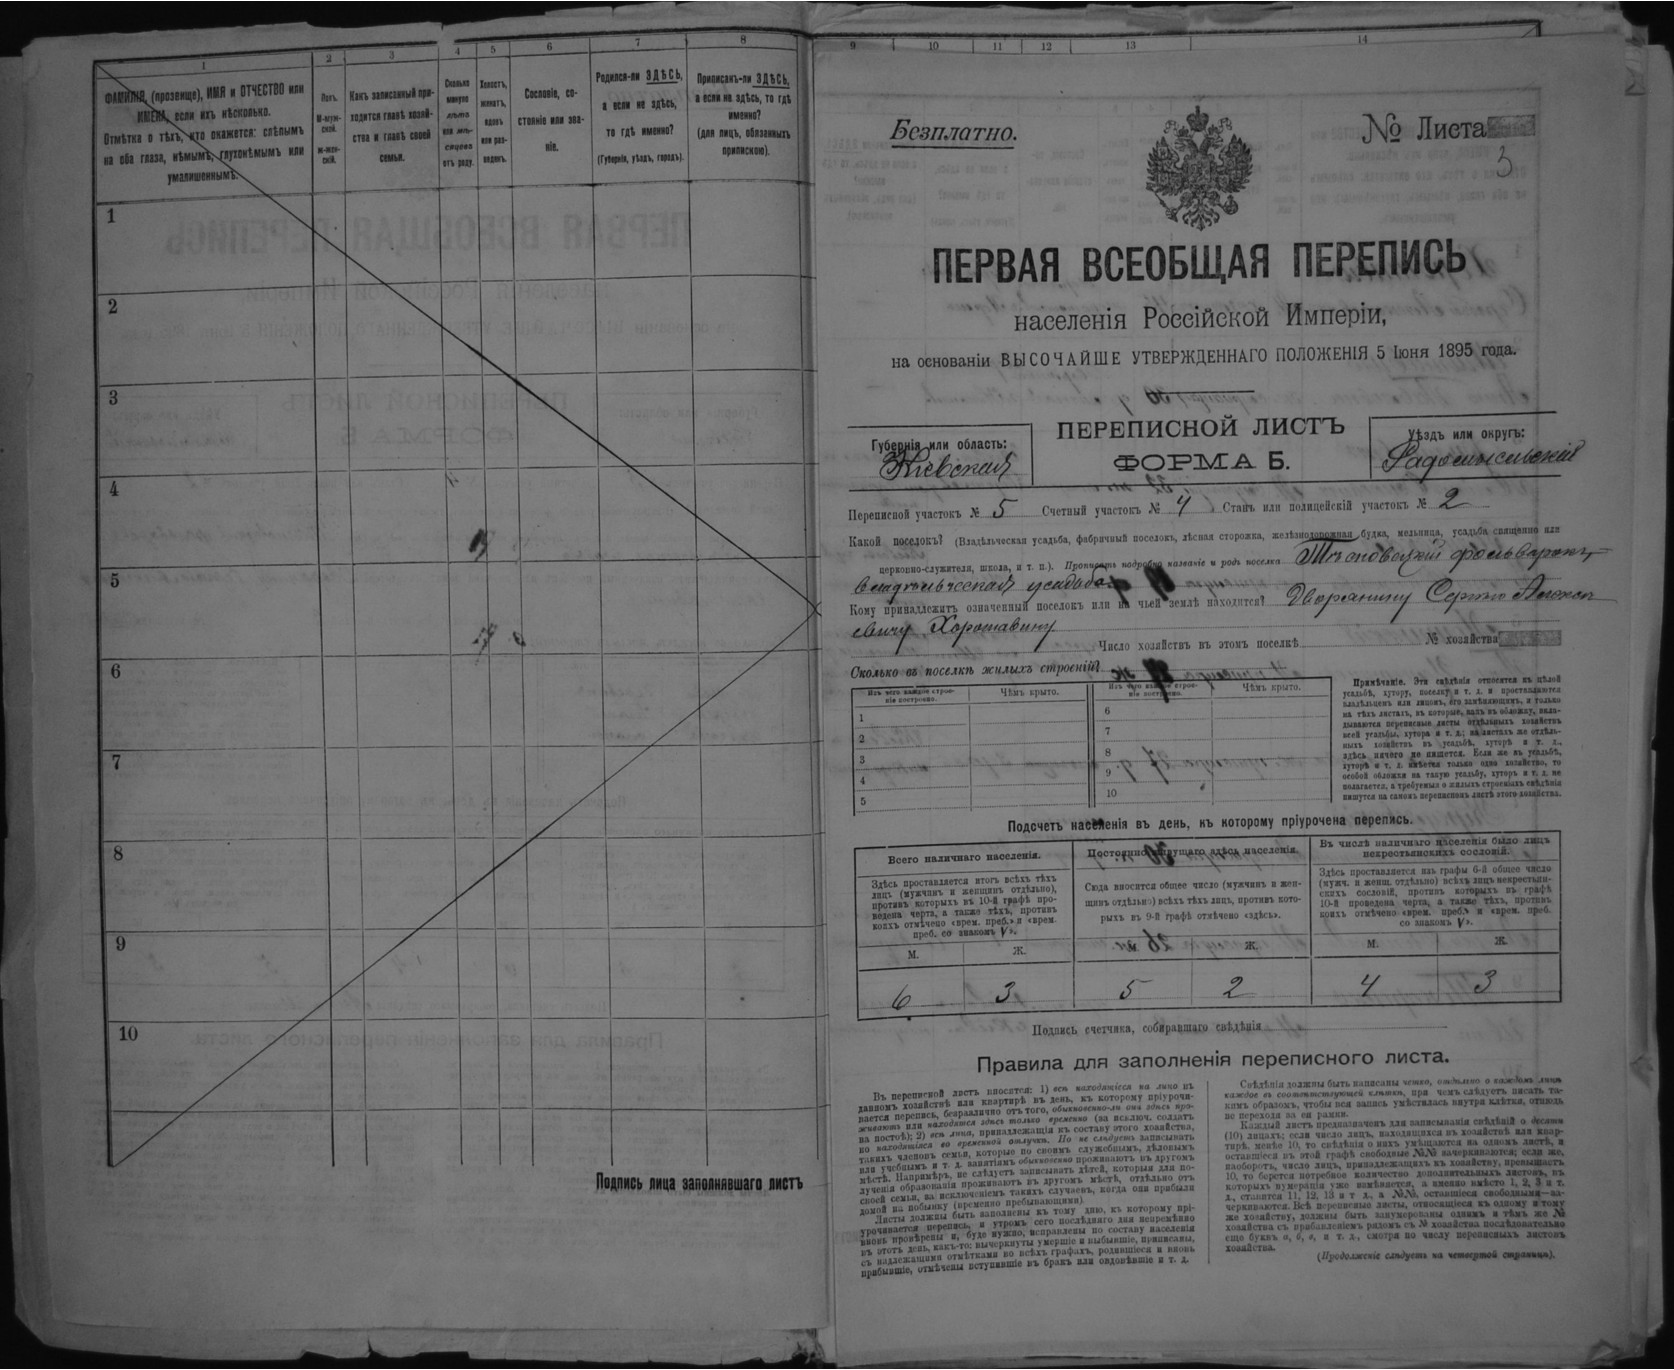 1
2
3
4
5
6
7
8
ФАМИЛІЯ, (прозвище), ИМЯ и ОТЧЕСТВО или
ИМЕНА, если ихъ нѣсколько.
Отмѣтка о тѣхъ, кто окажется: слѣпымъ
на оба глаза, нѣмымъ, глухонѣмымъ или
умалишеннымъ.
Полъ.
М-муж-
ской.
Ж-жен-
скій.
Какъ записанный при-
ходится главѣ хозяй-
ства и главѣ своей
семьи.
Сколько
минуло
лѣтъ
или мѣ-
сяцевъ
отъ роду.
Холостъ,
женатъ,
вдовъ
или раз-
веденъ.
Сословіе, со-
стояніе или зва-
ніе.
Родился-ли ЗДѢСЬ,
а если не здѣсь,
то гдѣ именно?
(Губернія, уѣздъ, городъ).
Приписанъ-ли ЗДѢСЬ,
а если не здѣсь, то гдѣ
именно?
(для лицъ, обязанныхъ
припискою).
1
2
3
4
5
6
7
8
9
10
Подпись лица заполнявшаго листъ
9
10
11
12
13
14
Безплатно.
№ Листа
3
ПЕРВАЯ ВСЕОБЩАЯ ПЕРЕПИСЬ
населенія Россійской Имперіи,
на основаніи ВЫСОЧАЙШЕ УТВЕРЖДЕННАГО ПОЛОЖЕНІЯ 5 Іюня 1895 года.
Губернія или область:
Кіевская
ПЕРЕПИСНОЙ ЛИСТЪ
ФОРМА Б.
Уѣздъ или округъ:
Радомысльскій
Переписной участокъ № 5 Счетный участокъ № 4 Станъ или полицейскій участокъ № 2
Какой поселокъ? (Владѣльческая усадьба, фабричный поселокъ, лѣсная сторожка, желѣзнодорожная будка, мельница, усадьба священно или
церковно-служителя, школа, и т. п.). Прописать подробно названіе и родъ поселка фольварокъ,
владѣльческая усадьба
Кому принадлежитъ означенный поселокъ или на чьей землѣ находится? Дворянину Сергѣю Алексѣ
евичу Хорошавину
Число хозяйствъ въ этомъ поселкѣ
№ хозяйства
Сколько въ поселкѣ жилыхъ строеній?
Изъ чего каждое строе-
ніе построено.
Чѣмъ крыто.
Изъ чего каждое строе-
ніе построено.
Чѣмъ крыто.
1
2
3
4
5
6
7
8
9
10
Примѣчаніе. Эти свѣдѣнія относятся къ цѣлой
усадьбѣ, хутору, поселку и т. д. и проставляются
владѣльцемъ или лицомъ, его замѣняющимъ, и только
на тѣхъ листахъ, въ которые, какъ въ обложку, вкла-
дываются переписные листы отдѣльныхъ хозяйствъ
всей усадьбы, хутора и т. д.; на листахъ же отдѣль-
ныхъ хозяйствъ въ усадьбѣ, хуторѣ и т. д.,
здѣсь ничего не пишется. Если же въ усадьбѣ,
хуторѣ и т. д. имѣется только одно хозяйство, то
особой обложки на такую усадьбу, хуторъ и т. д. не
полагается, а требуемыя о жилыхъ строеніяхъ свѣдѣнія
пишутся на самомъ переписномъ листѣ этого хозяйства.
Подсчетъ населенія въ день, къ которому пріурочена перепись.
Всего наличнаго населенія.
Здѣсь проставляется итогъ всѣхъ тѣхъ
лицъ (мужчинъ и женщинъ отдѣльно),
противъ которыхъ въ 10-й графѣ про-
ведена черта, а также тѣхъ, противъ
коихъ отмѣчено «врем. преб.» и «врем.
преб. со знакомъ V».
М.
Ж.
Постоянно живущаго здѣсь населенія.
Сюда вносится общее число (мужчинъ и жен-
щинъ отдѣльно) всѣхъ тѣхъ лицъ, противъ кото-
рыхъ въ 9-й графѣ отмѣчено «здѣсь».
Ж.
Въ числѣ наличнаго населенія было лицъ
некрестьянскихъ сословій.
Здѣсь проставляется изъ графы 6-й общее число
(мужч. и женщ. отдѣльно) всѣхъ лицъ некрестьян-
скихъ сословій, противъ которыхъ въ графѣ
10-й проведена черта, а также тѣхъ, противъ
коихъ отмѣчено «врем. преб.» и «врем. преб.
со знакомъ V».
М.
Ж.
6 3 5 2 4 3
Подпись счетчика, собиравшаго свѣдѣнія
Правила для заполненія переписного листа.
Въ переписной листъ вносятся: 1) всѣ находящіеся на лицо въ
данномъ хозяйствѣ или квартирѣ въ день, къ которому пріурочи-
вается перепись, безразлично отъ того, обыкновенно-ли они здѣсь про-
живаютъ или находятся здѣсь только временно (за исключ. солдатъ
на постоѣ); 2) всѣ лица, принадлежащія къ составу этого хозяйства,
но находящіяся во временной отлучкѣ. Но не слѣдуетъ записывать
такихъ членовъ семьи, которые по своимъ служебнымъ, дѣловымъ
или учебнымъ и т. д. занятіямъ обыкновенно проживаютъ въ другомъ
мѣстѣ. Напримѣръ, не слѣдуетъ записывать дѣтей, которыя для по-
лученія образованія проживаютъ въ другомъ мѣстѣ, отдѣльно отъ
своей семьи, за исключеніемъ такихъ случаевъ, когда они прибыли
домой на побывку (временно пребывающими).
Листы должны быть заполнены къ тому дню, къ которому прі-
урочивается перепись, и утромъ сего послѣдняго дня непремѣнно
вновь провѣрены и, буде нужно, исправлены по составу населенія
въ этотъ день, какъ-то: вычеркнуты умершіе и выбывшіе, приписаны,
съ надлежащими отмѣтками во всѣхъ графахъ, родившіеся и вновь
прибывшіе, отмѣчены вступившіе въ бракъ или овдовѣвшіе и т. д.
Свѣдѣнія должны быть написаны четко, отдѣльно о каждомъ лицѣ
каждое въ соотвѣтствующей клѣткѣ, при чемъ слѣдуетъ писать та-
кимъ образомъ, чтобы вся запись умѣстилась внутри клѣтки, отнюдь
не переходя за ея рамки.
Каждый листъ предназначенъ для записыванія свѣдѣній о десяти
(10) лицахъ; если число лицъ, находящихся въ хозяйствѣ или квар-
тирѣ, менѣе 10, то свѣдѣнія о нихъ умѣщаются на одномъ листѣ, а
оставшіеся въ этой графѣ свободные №№ зачеркиваются; если же,
наоборотъ, число лицъ, принадлежащихъ къ хозяйству, превышаетъ
10, то берется потребное количество дополнительныхъ листовъ, въ
которыхъ нумерація уже измѣняется, а именно вмѣсто 1, 2, 3 и т.
д., ставятся 11, 12, 13 и т. д., а №№, оставшіеся свободными—за-
черкиваются. Всѣ переписные листы, относящіеся къ одному и тому
же хозяйству, должны быть занумерованы однимъ и тѣмъ же №
хозяйства съ прибавленіемъ рядомъ съ № хозяйства послѣдовательно
еще буквъ а, б, в, и т. д., смотря по числу переписныхъ листовъ
хозяйства.
(Продолженіе слѣдуетъ на четвертой страницѣ).